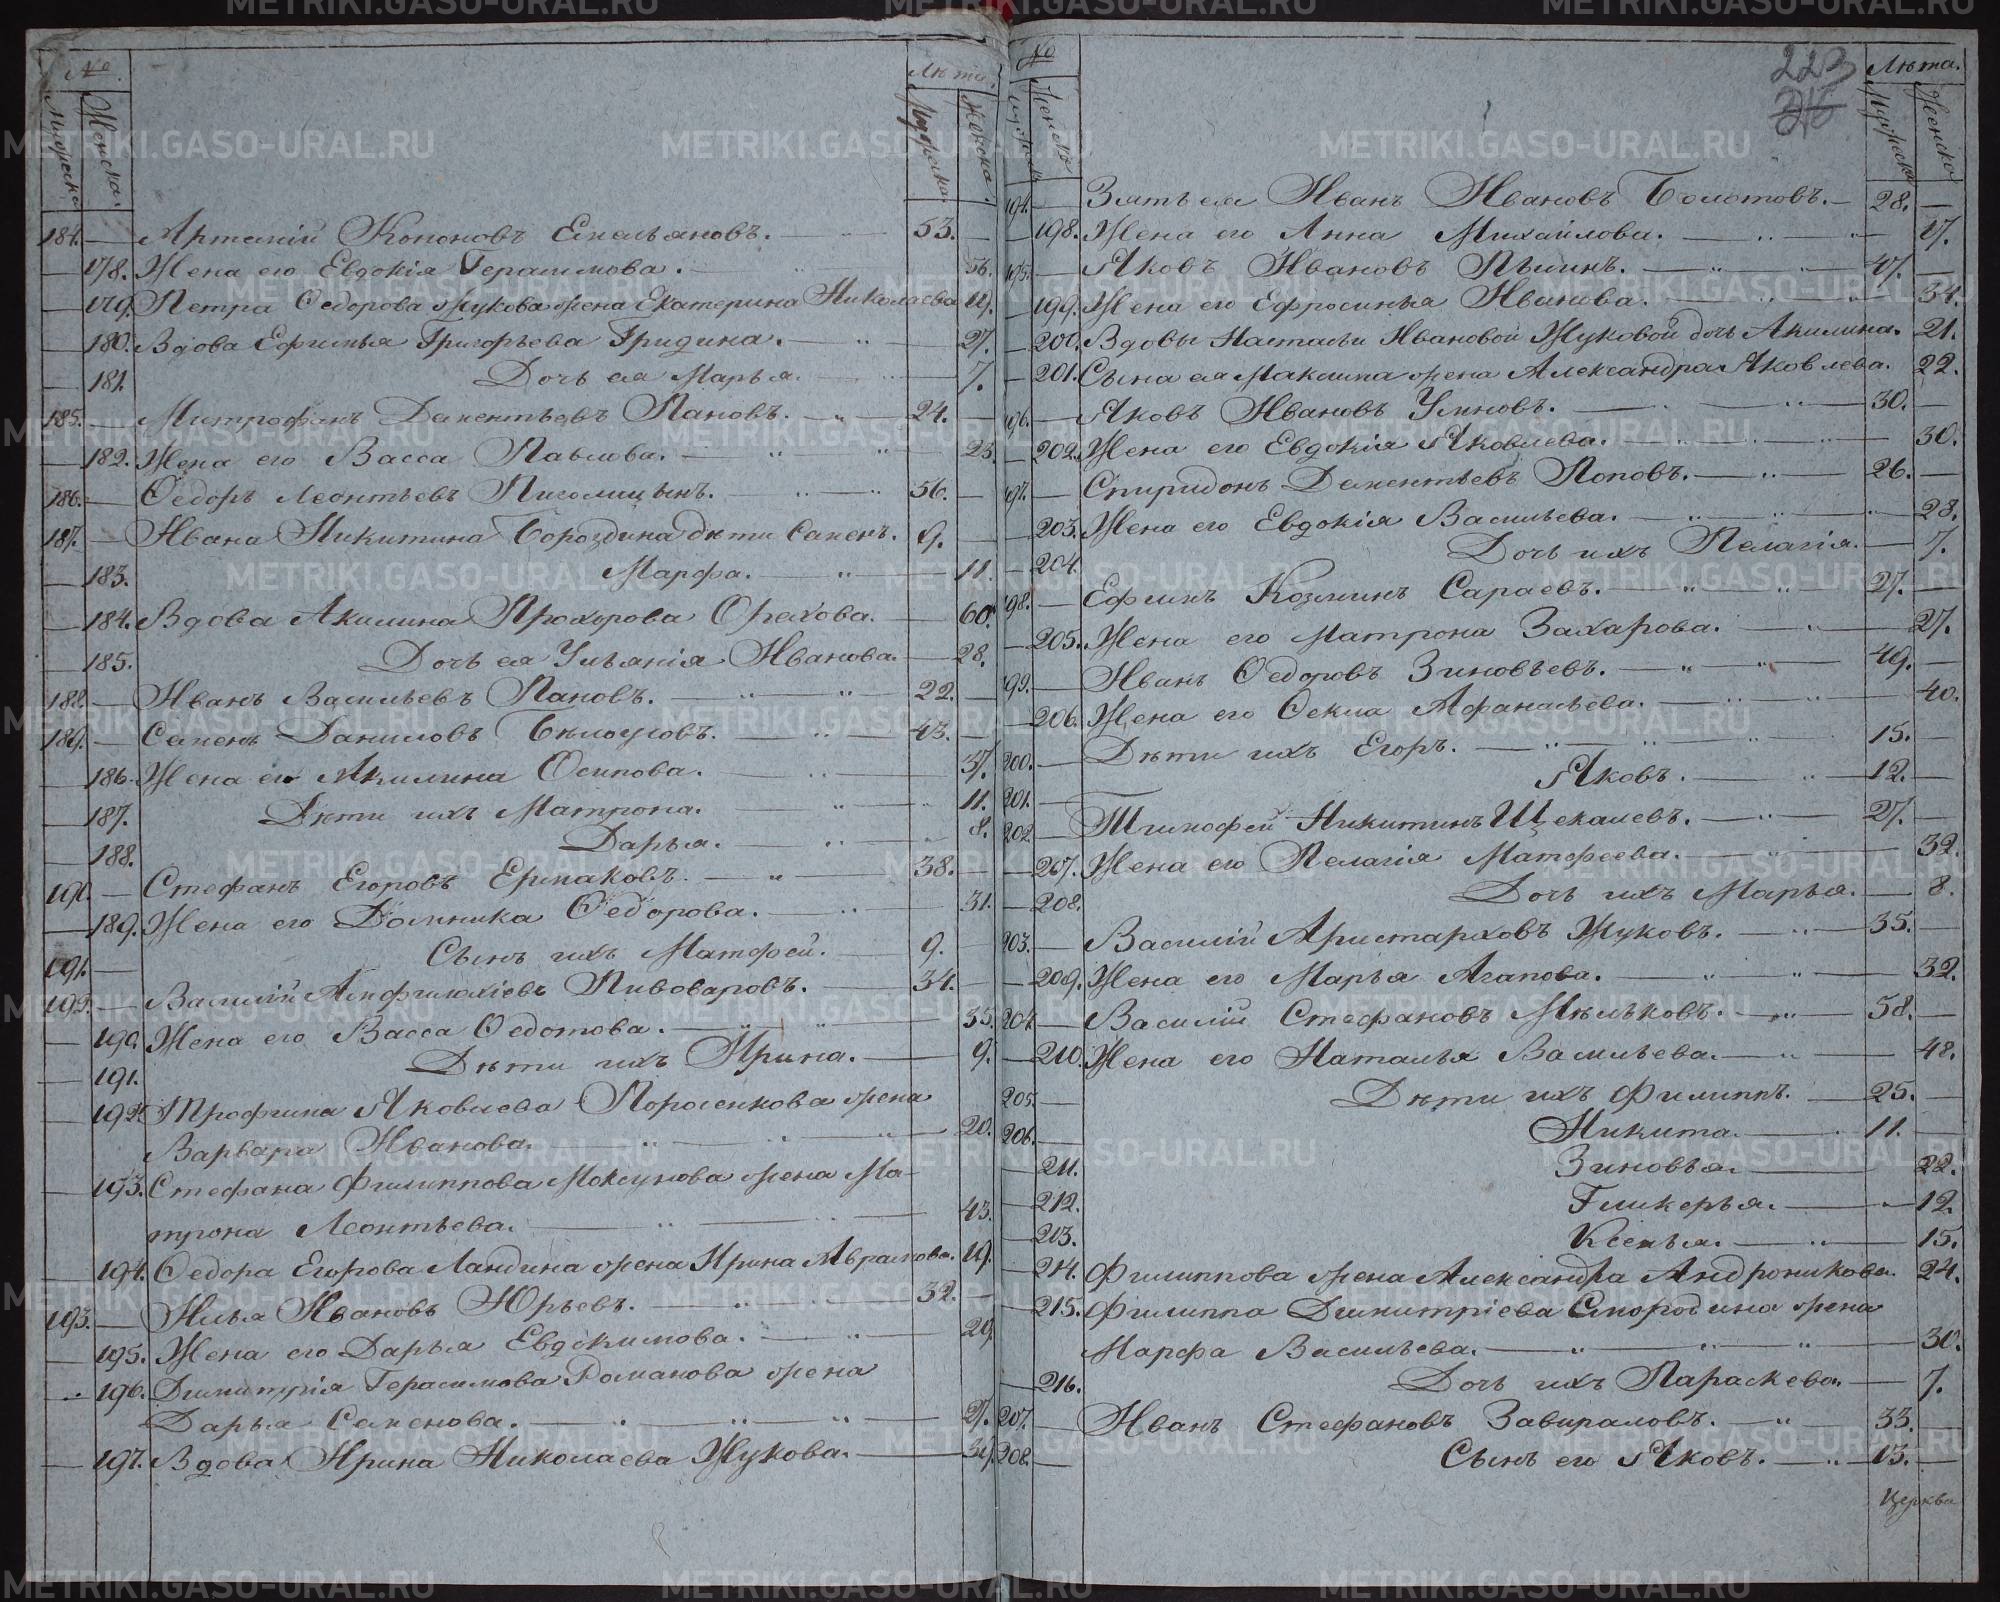 № Лѣта.
Мужеска. Женска. Мужеска. Женска.
184. — Артемій Кононовъ Емельяновъ. — 53. —
— 178. Жена его Евдокія Герасимова. — 56.
— 179. Петра Ѳедорова Жукова жена Екатерина Николаева 19.
— 180. Вдова Ефимья Григорьева Гридина. — „ — 27.
— 181. Дочь ея Марья. — 7.
185. — Митрофанъ Дементьевъ Пановъ. — „ — 24. —
— 182. Жена его Васса Павлова. — „ — „ — 23.
186. — Ѳедоръ Леонтьевъ Пиголицынъ. — „ — „ 56. —
187. — Ивана Никитина Бороздина дѣти Семенъ. 9. —
— 183. Марфа. — „ — 11.
— 184. Вдова Акилина Прохорова Орехова. — 60.
— 185. Дочь ея Ульянія Иванова. — 28.
188. — Иванъ Васильевъ Пановъ. — „ — „ — 22. —
189. — Семенъ Даниловъ Бѣлоусовъ. — „ — 43. —
— 186. Жена его Акилина Осипова. — „ — 37.
— 187. Дѣти ихъ Матрона. — „ — „ 11.
— 188. Дарья. — „ — 8.
190. — Стефанъ Егоровъ Ермаковъ. — „ — 38. —
— 189. Жена его Домника Ѳедорова. — „ — 31.
191. — Сынъ ихъ Матфей. — 9. —
192. — Василій Амфилохіевъ Пивоваровъ. — 34. —
— 190. Жена его Васса Ѳедотова. — „ — „ — 35.
— 191. Дѣти ихъ Ирина. — 9.
— 192. Трофима Яковлева Поросенкова жена
Варвара Иванова. „ — „ — „ — 20.
— 193. Стефана Филиппова Моксунова жена Ма-
трона Леонтьева. — „ — „ — 43.
— 194. Ѳедора Егорова Ландина жена Ирина Аврамова. 19.
193. — Илья Ивановъ Юрьевъ. — „ — 32. —
— 195. Жена его Дарья Евдокимова. — „ — 29.
— 196. Димитрія Герасимова Романова жена
Дарья Семенова. — „ — „ — „ — 27.
— 197. Вдова Ирина Николаева Жукова. — 39.
223
№ Лѣта.
Мужеска. Женска. Мужеска. Женска.
194. — Зять ея Иванъ Ивановъ Болотовъ. — 28. —
— 198. Жена его Анна Михайлова. — „ — „ — 17.
195. — Яковъ Ивановъ Пьминъ. — „ — „ — 47. —
— 199. Жена его Ефросинья Иванова. — „ — 34.
— 200. Вдовы Натальи Ивановой Жуковой дочь Акилина. 21.
— 201. Сына ея Максима жена Александра Яковлева. 22.
196. — Яковъ Ивановъ Уминовъ. — „ — „ — 30. —
— 202. Жена его Евдокія Яковлева. — „ — „ — 30.
197. — Спиридонъ Дементьевъ Поповъ. — „ — 26. —
— 203. Жена его Евдокія Васильева. — „ — „ — „ — 28.
— 204. Дочь ихъ Пелагія. — 7.
198. — Ефимъ Козминъ Сараевъ. — „ — „ — 27. —
— 205. Жена его Матрона Захарова. — „ — 27.
199. — Иванъ Ѳедоровъ Зиновьевъ. — „ — „ — 49. —
— 206. Жена его Ѳекла Афанасьева. — „ — „ — 40.
200. — Дѣти ихъ Егоръ. — „ — „ — „ — 15. —
201. — Яковъ. — „ — 12. —
202. — Тимофей Никитинъ Щекалевъ. — „ — 27. —
— 207. Жена его Пелагія Матфеева. — „ — 32.
— 208. Дочь ихъ Марья. — 8.
203. — Василій Аристарховъ Жуковъ. — „ — 35. —
— 209. Жена его Марья Агапова. — „ — „ — 32.
204. — Василій Стефановъ Мѣльковъ. — „ — 58. —
— 210. Жена его Наталья Васильева. — „ — 48.
205. — Дѣти ихъ Филиппъ. — 25. —
206. — Никита. — „ 11. —
— 211. Зиновья. — 22.
— 212. Гликерья. — „ 12.
— 213. Ксенья. — „ — 15.
— 214. Филиппова жена Александра Андроникова. 24.
— 215. Филиппа Димитріева Смородина жена
Марфа Васильева. — „ — „ — „ — 30.
— 216. Дочь ихъ Параскева. — 7.
207. — Иванъ Стефановъ Завираловъ. — „ — 33. —
208. — Сынъ его Яковъ. — „ — 13. —
Церкви